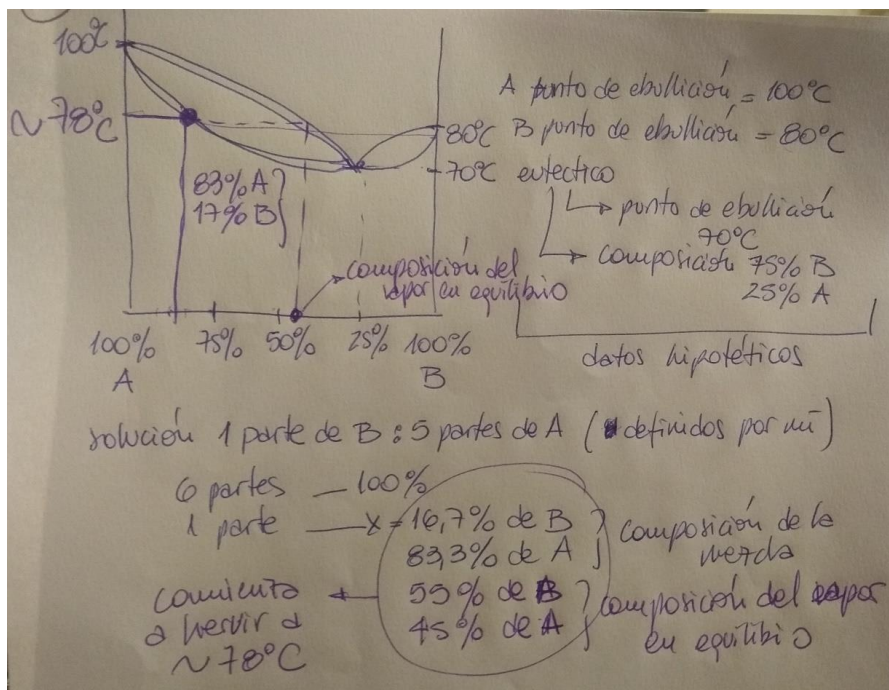 100°C
~78°C
83% A
17% B
composición del
vapor en equilibrio
100%
A
75%
50%
25%
100%
B
80°C
70°C eutectico
A punto de ebullición = 100°C
B punto de ebullición = 80°C
punto de ebullición
70°C
composición 75% B
25% A
datos hipotéticos
solución 1 parte de B : 5 partes de A ( definidos por mí)
6 partes — 100%
1 parte — x = 16,7% de B
83,3% de A
composición de la
mezcla
55% de B
45% de A
composición del vapor
en equilibio
comienza
a hervir a
~78°C